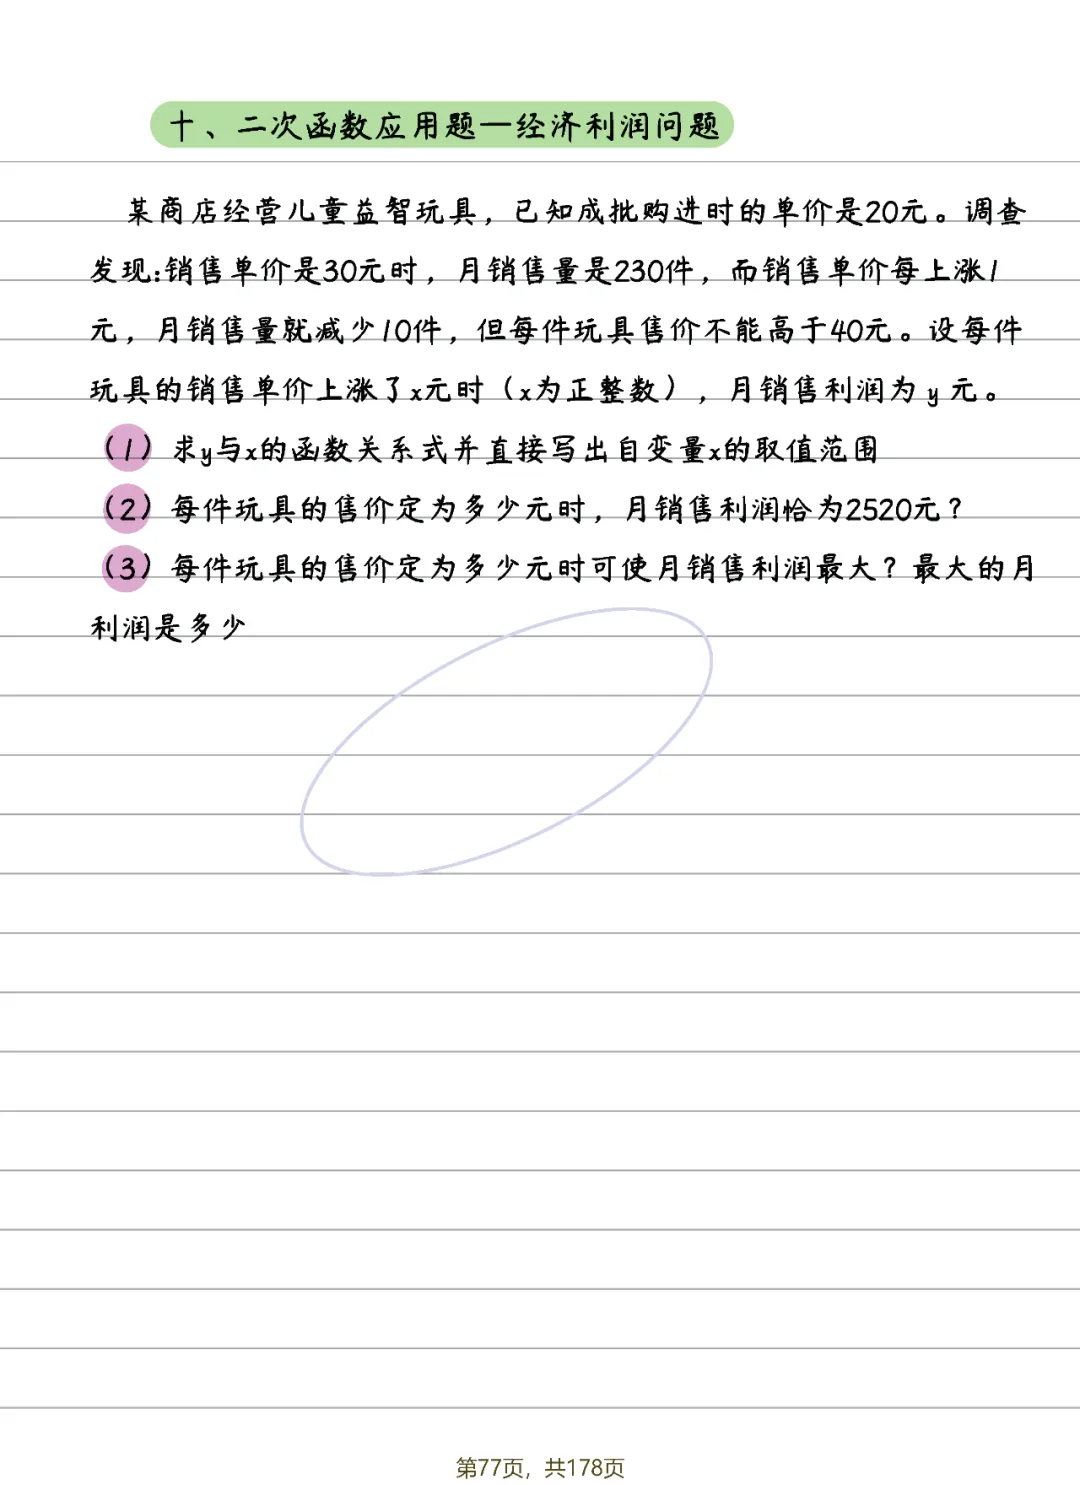 十、二次函数应用题—经济利润问题
某商店经营儿童益智玩具，已知成批购进时的单价是20元。调查
发现:销售单价是30元时，月销售量是230件，而销售单价每上涨1
元，月销售量就减少10件，但每件玩具售价不能高于40元。设每件
玩具的销售单价上涨了x元时（x为正整数），月销售利润为y元。
（1）求y与x的函数关系式并直接写出自变量x的取值范围
（2）每件玩具的售价定为多少元时，月销售利润恰为2520元？
（3）每件玩具的售价定为多少元时可使月销售利润最大？最大的月
利润是多少
第77页，共178页